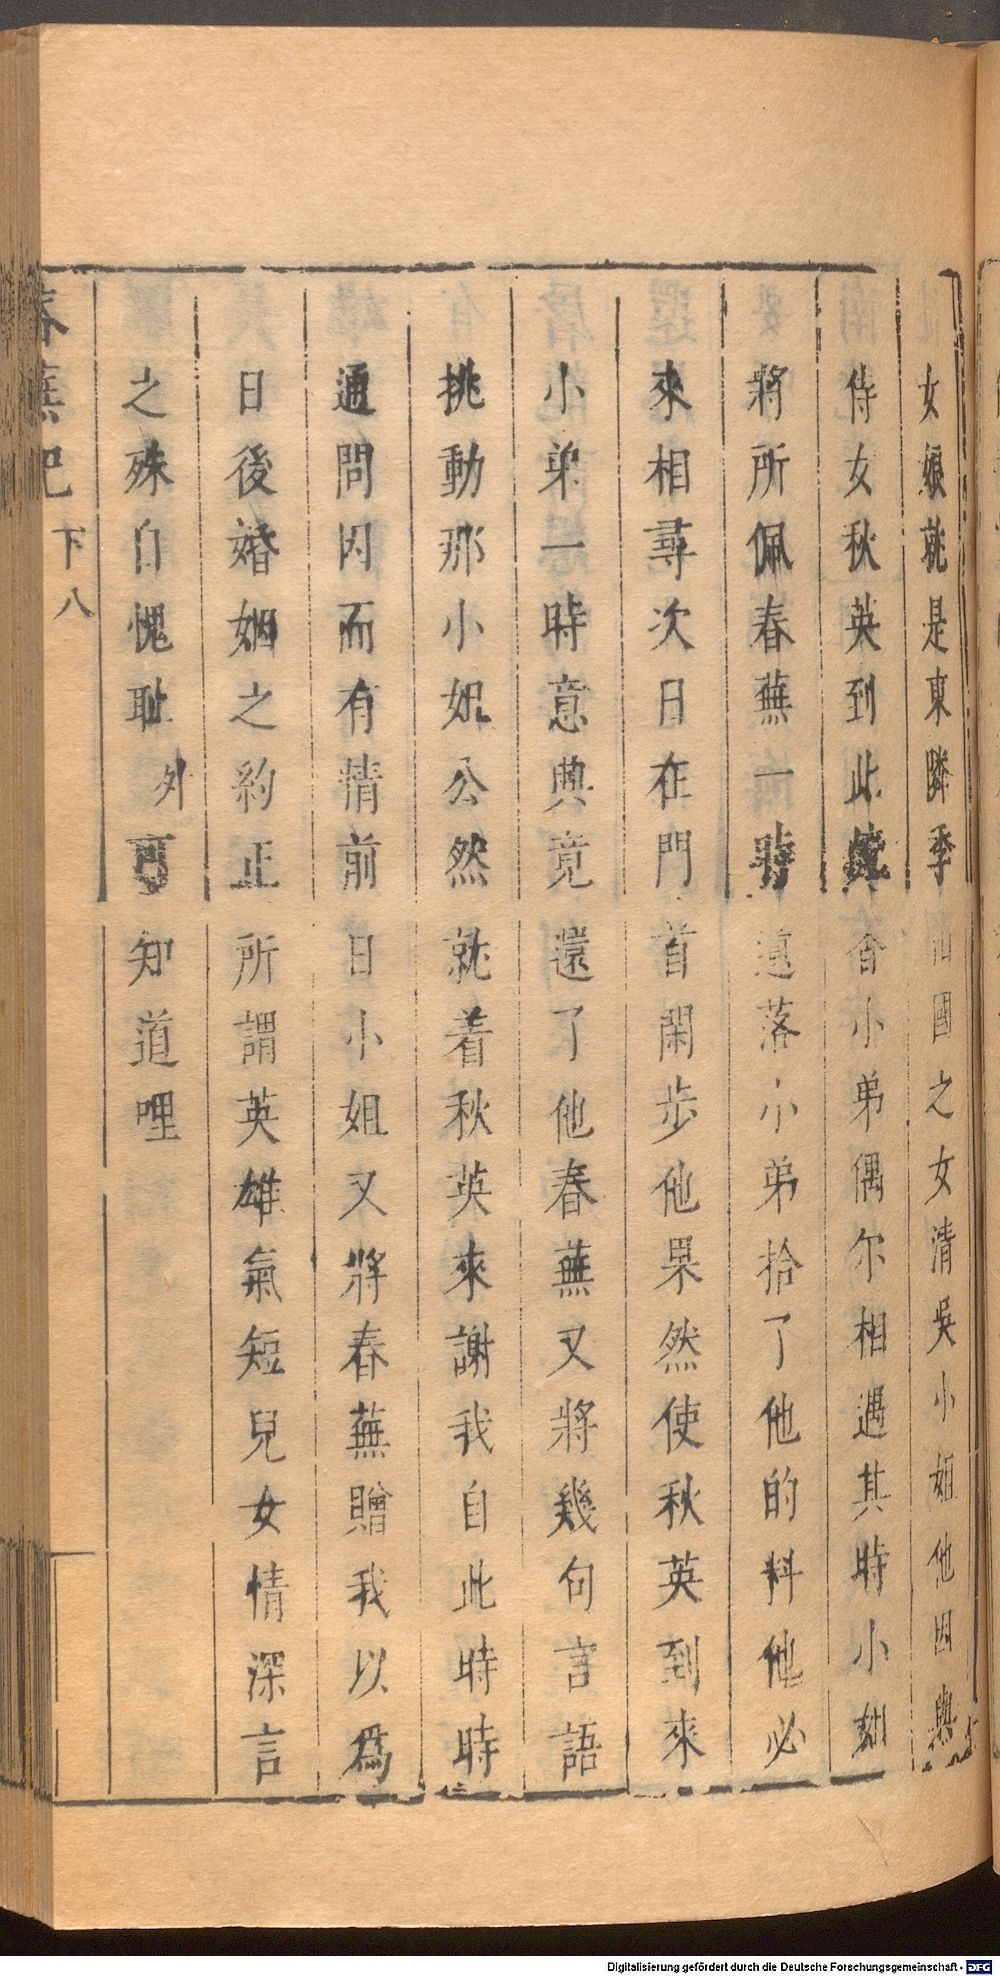 女娘就是東隣季相國之女清吳小姐他因與
侍女秋英到此燒香小弟偶尔相遇其時小姐
將所佩春蕪一時遺落小弟拾了他的料他必
來相尋次日在門首閑步他果然使秋英到來
小弟一時意興竟還了他春蕪又將幾句言語
挑動那小姐公然就着秋英來謝我自此時時
通問因而有情前日小姐又將春蕪贈我以爲
日後婚姻之約正所謂英雄氣短兒女情深言
之殊自愧耻外可知道哩
春蕪記 下 八
Digitalisierung gefördert durch die Deutsche Forschungsgemeinschaft - DFG